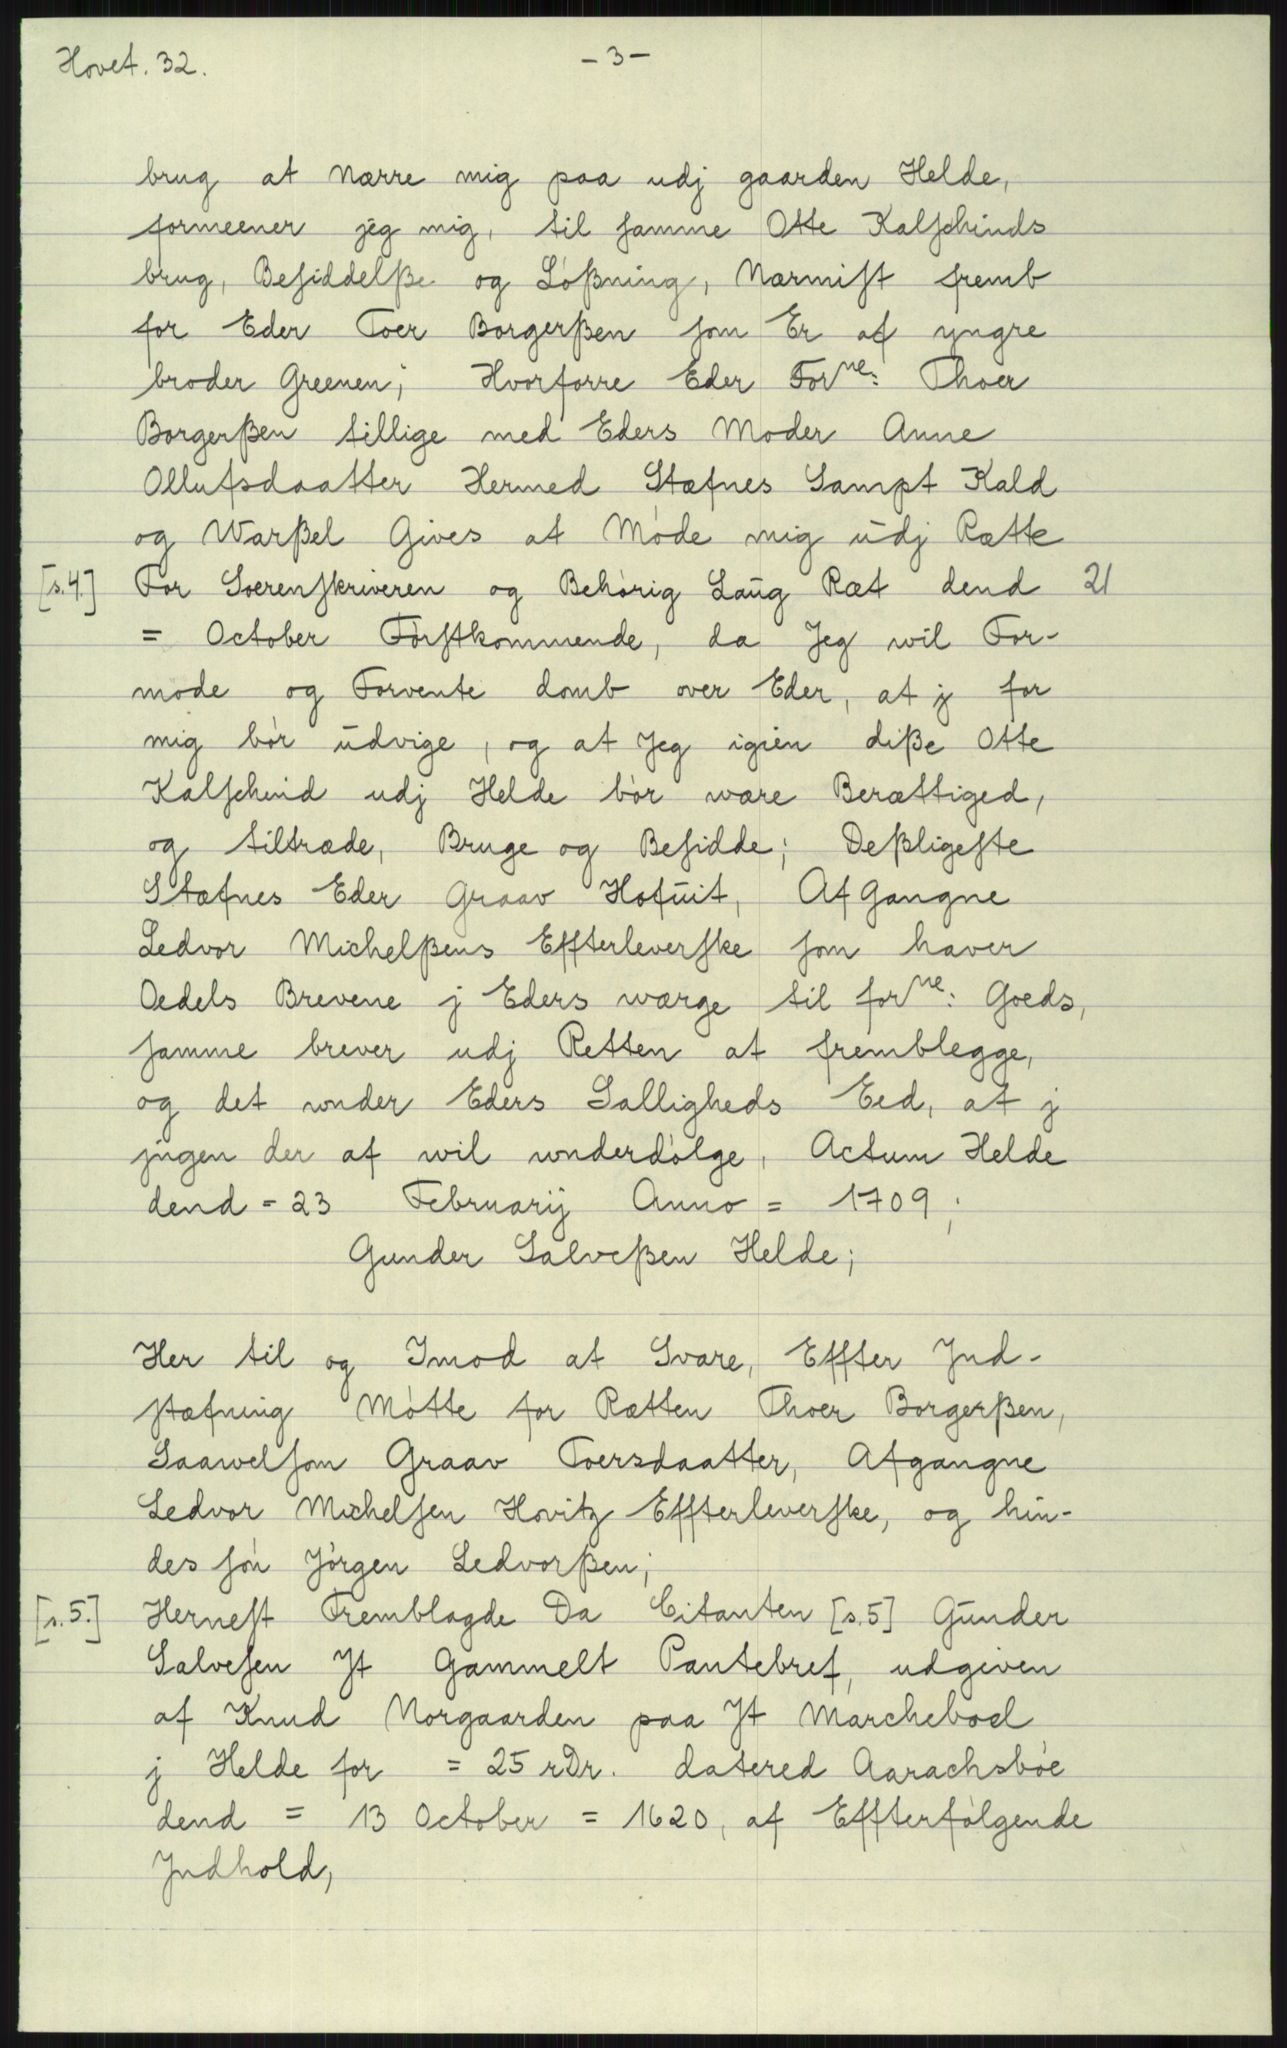 Hovet. 32.
- 3 -
brug at Nærre mig paa udj gaarden Helde,
formeener jeg mig, til samme Otte Kalfschinds
brug, Besiddelße og Lößning, Nærmist fremb
for Eder Toer Borgerßen som Er af yngre
broder Greenen; Hvorforre Eder Forne: Thoer
Borgerßen tillige med Eders Moder Anne
Ollufsdaatter Hermed Stæfnes Sampt Kald
og Warßel Gives at Möde mig udj Rætte
[s.4.] For Soerenskriveren og Behörig Laug Ræt dend 21
= October Förstkommende, da Jeg wil For-
mode og Forvente domb over Eder, at j for
mig bör udvige, og at Jeg igien diße Otte
Kalfschind udj Helde bör være Berættiged,
og tiltræde, Bruge og Besidde; Deßligeste
Stæfnes Eder Graav Hofuit, Af Gangne
Ledvor Michelßens Effterleverske som haver
Oedels Brevene j Eders værge til forne: Goeds,
samme brever udj Retten at fremblegge,
og det under Eders Salligheds Eed, at j
jngen der af wil underdölge, Actum Helde
dend = 23 Februarij Anno = 1709;
Gunder Salveßen Helde;
Her til og Imod at Svare, Effter Jnd-
stæfning Mötte for Rætten Thoer Borgerßen,
Saawelsom Graav Toersdaatter, Afgangne
Ledvor Michelsen Hovitz Effterleverske, og hin-
des sön Jörgen Ledvorßen;
[s.5.] Hernest Fremblagde Da Citanten [s.5] Gunder
Salvesen Jt Gammelt Pantebref, udgiven
af Knud Norgaarden paa Jt Marcheboel
j Helde for = 25 rDr. datered Aarachsböe
dend = 13 October = 1620, af Effterfölgende
Jndhold,